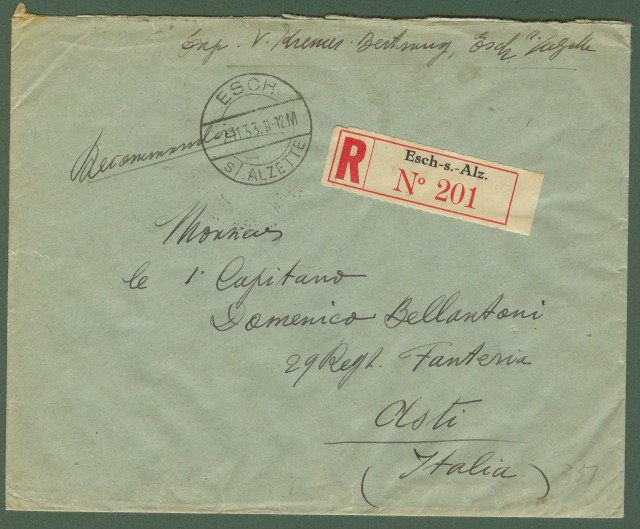 Exp. V. Kremer-Bertrang, Esch s/Alzette
ESCH
2.11.33.11-12M
S/. ALZETTE
Recommandée
R
Esch-s.-Alz.
N° 201
Monsieur
le 1° Capitano
Domenico Bellantoni
29 Regt. Fanteria
Asti
(Italia)
251